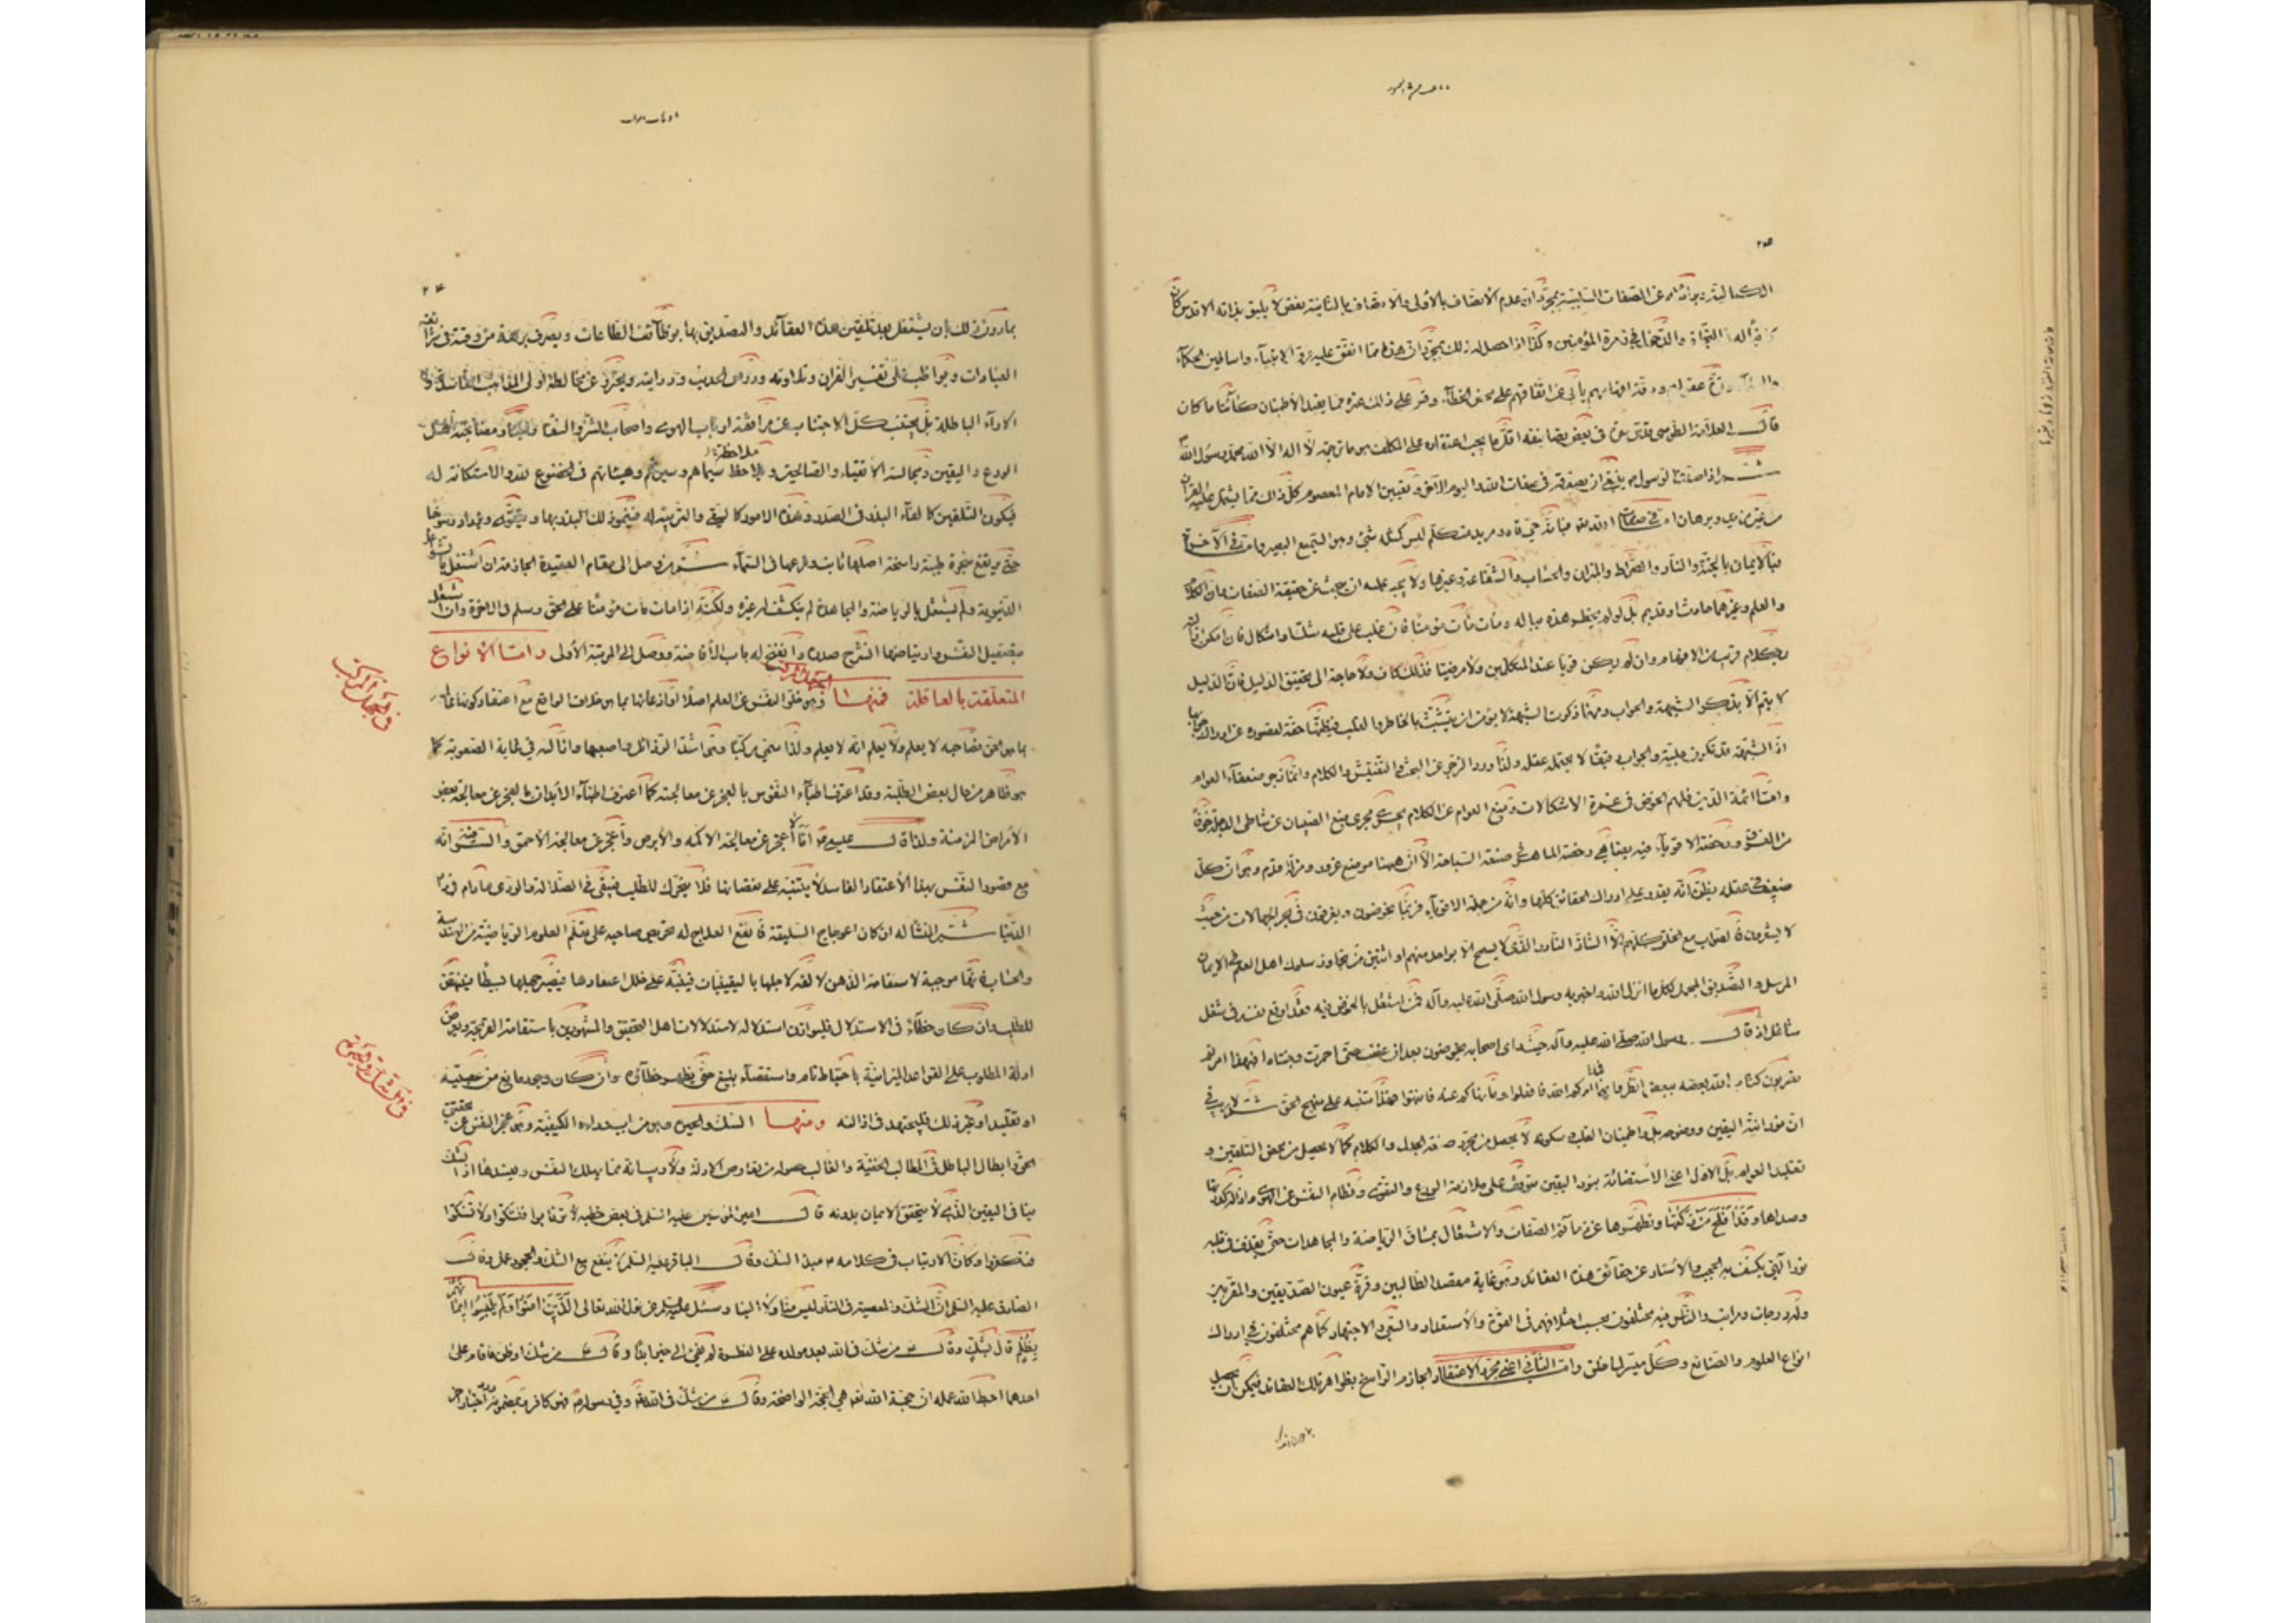 الكمالية وبراءته عن الصفات السلبية بمجرد ان عدم الاتصاف بالأولى والاتصاف بالثانية نقص لا يليق بذاته الاقدس كان
في النجاة والدخول في زمرة المؤمنين وكذا اذا حصل له ذلك بمجرد ان هذا مما اتفق عليه فرق الانبياء واساطين الحكماء
عقولهم ودقة افهامهم يأبى عن اتفاقهم على محض الخطأ وقس على ذلك غيره مما يفيد الاطمئنان كائنا ما كان
قال العلامة الطوسي قدس سره في بعض تصانيفه اقل ما يجب اعتقاده على المكلف هو ما ترجمته لا اله الا الله محمد رسول الله
ثم اذا صدق الرسول ينبغي ان يصدقه في صفات الله واليوم الآخر وتعيين الامام المعصوم كل ذلك مما يشتمل عليه القرآن
من غير مزيد وبرهان اما في صفات الله فبأنه حي قادر مريد متكلم ليس كمثله شيء وهو السميع البصير واما في الآخرة
فبالايمان بالجنة والنار والصراط والميزان والحساب والشفاعة وغيرها ولا يجب عليه ان يبحث عن حقيقة الصفات وان الكلام
والعلم وغيرهما حادث او قديم بل لو لم يخطر هذه بباله ومات مات مؤمنا فان غلب على قلبه شك او اشكال فان امكن ازالته
بكلام قريب من الافهام وان لم يكن قويا عند المتكلمين ولا مرضيا فذلك كاف ولا حاجة الى تحقيق الدليل فان الدليل
لا يتم الا بذكر الشبهة والجواب ومهما ذكرت الشبهة لا يؤمن ان يتشبث بالخاطر والقلب فيظنها حقة لقصوره عن ادراك جوابها
اذ الشبهة قد تكون جلية والجواب دقيقا لا يحتمله عقله ولذا ورد الزجر عن البحث والتفتيش والكلام وانما زجر ضعفاء العوام
واما ائمة الدين فلهم الخوض في غمرة الاشكالات ومنع العوام عن الكلام يجري مجرى منع الصبيان عن شاطئ الدجلة خوفا
من الغرق ورخصة الاقوياء فيه يضاهي رخصة الماهر في صنعة السباحة الا ان ههنا موضع غرور ومزلة قدم وهو ان كل
ضعيف في عقله يظن انه يقدر على ادراك الحقائق كلها وانه من جملة الاقوياء فربما يخوضون ويغرقون في بحر الجهالات من حيث
لا يشعرون فالصواب منع الخلق كلهم الا الشاذ النادر الذي لا يسمح الا بواحد منهم او اثنين من تجاوز سلوك اهل العلم في الايمان
المرسل والتصديق المجمل بكل ما انزل الله واخبر به رسول الله صلى الله عليه وآله فمن اشتغل بالخوض فيه فقد اوقع نفسه في شغل
شاغل اذ قال رسول الله صلى الله عليه وآله حيث رأى اصحابه يخوضون بعد ان غضب حتى احمرت وجنتاه افبهذا امرتم
تضربون كتاب الله بعضه ببعض انظروا فما امركم الله فافعلوا وما نهاكم عنه فانتهوا فهذا تنبيه على منهج الحق ثم لا ريب في
ان نورانية اليقين ووضوحه بل واطمينان القلب وسكونه لا يحصل من مجرد صنعة الجدل والكلام كما لا يحصل من محض التلقين و
تقليد العوام بل الاول اعني الاستضائة بنور اليقين يتوقف على ملازمة الورع والتقوى وفطام النفس عن الهوى وازالة كدورتها
وصدأها وقد افلح من زكيها وتطهيرها عن ذمائم الصفات والاشتغال بمشاق الرياضة والمجاهدات حتى يقذف في قلبه
نور الٓهي يكشف به الحجب والاستار عن حقائق هذه العقائد وهو غاية مقصد الطالبين وقرة عيون الصديقين والمقربين
وله درجات ومراتب والناس فيه مختلفون بحسب اختلافهم في القوة والاستعداد والسعي والاجتهاد كما هم مختلفون في ادراك
انواع العلوم والصنائع وكل ميسر لما خلق واما الثاني اعني مجرد الاعتقاد الجازم الراسخ بظواهر تلك العقائد فيمكن ان تحصيل
بما دون ذلك بان يشتغل بعد تلقين هذه العقائد والتصديق بها بوظائف الطاعات ويصرف برهة من وقته في شرائف
العبادات ويواظب على تفسير القرآن وتلاوته ودرس الحديث ودرايته ويحترز عن مخالطة اولى المذاهب الفاسدة و
الآراء الباطلة بل يجتنب كل الاجتناب عن مرافقة ارباب الهوى واصحاب الشر والشقاء ويختار مصاحبة اهل
الورع واليقين ومجالسة الاتقياء والصالحين وملاحظة سيماهم وسيرتهم وهيئاتهم في الخضوع لله والاستكانة له
فيكون التلقين كالقاء البذر في الصدر وهذه الامور كالسقي والتربية له فينمو ذلك البذر بها ويتقوى ويزداد رسوخا
حتى يرتفع شجرة طيبة راسخة اصلها ثابت وفرعها في السماء ثم من وصل الى مقام العقيدة الجازمة ان اشتغل بالشواغل
الدنيوية ولم يشتغل بالرياضة والمجاهدة لم ينكشف له غيره ولكنه اذا مات مات مؤمنا على الحق وسلم في الآخرة وان اشتغل
بتصقيل النفس وارتياضها انشرح صدره وانفتح له باب الافاضة ووصل الى المرتبة الاولى واما الانواع
المتعلقة بالعاقلة فمنها الجهل المركب وهو خلو النفس عن العلم اصلا او اذعانها بما هو خلاف الواقع مع اعتقاد كونها عالمة
بما هو الحق فصاحبه لا يعلم ولا يعلم انه لا يعلم ولذا سمي مركبا وهو اشد الرذائل واصعبها وازالته في غاية الصعوبة كما
هو ظاهر من حال بعض الطلبة وقد اعترف اطباء النفوس بالعجز عن معالجته كما اعترف اطباء الأبدان بالعجز عن معالجة بعض
الامراض المزمنة ولذا قال عيسى انا لا اعجز عن معالجة الاكمه والابرص واعجز عن معالجة الاحمق والسر فيه انه
مع قصور النفس بهذا الاعتقاد الفاسد لا يتنبه على نقصانها فلا يتحرك للطلب فيبقى في الضلالة والردى ما دام في دار
الدنيا ثم المنشأ له ان كان اعوجاج السليقة فانفع العلاج له تحريص صاحبه على تعلم العلوم الرياضية من الهندسة
والحساب فانها موجبة لاستقامة الذهن لالفه لاجلها باليقينيات فيتنبه على خلل اعتقادها فيصير جهلها بسيطا فينتهض
للطلب وان كان خطأ في الاستدلال فليوازن استدلاله لاستدلالات اهل التحقيق والمشهورين باستقامة القريحة ويعرض
ادلة المطلوب على القواعد الميزانية باحتياط تام واستقصاء بليغ حتى يظهر خطاؤه وان كان وجود مانع من عصبية
او تقليد او غير ذلك فليجتهد في ازالته ومنها الشك والحيرة وهو من باب رداءة الكيفية وهي عجز النفس عن تحقيق
الحق وابطال الباطل في المطالب الخفية والغالب حصوله من تعارض الادلة ولا ريب انه مما يهلك النفس ويفسدها اذ الشك
ينافي اليقين الذي لا يتحقق الايمان بدونه قال امير المؤمنين عليه السلم في بعض خطبه لا ترتابوا فتشكوا ولا تشكوا
فتكفروا وكأن الارتياب في كلامه مبدأ الشك وقال الباقر عليه السلم لا ينفع مع الشك والجحود عمل وقال
الصادق عليه السلم ان الشك والمعصية في النار ليس منا ولا الينا وسئل عليه السلم عن قول الله تعالى الذين آمنوا ولم يلبسوا ايمانهم
بظلم قال بشك وقال من شك في الله بعد مولده على الفطرة لم يفئ الى خير ابدا وقال من شك او ظن فاقام على
احدهما احبط الله عمله ان حجة الله هي الحجة الواضحة وقال من شك في الله وفي رسوله فهو كافر وبمضمونه وردت اخبار اخر
في الجهل المركب
في الشك والحيرة